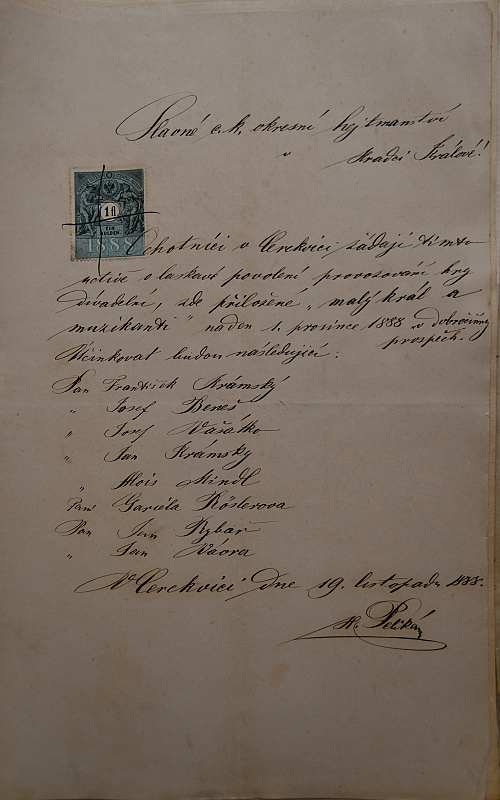 Slavné c. k. okresní hejtmanství
v
Hradci Králové!
1 fl
EIN
GULDEN.
1888
Ochotníci v Cerekvici žádají tímto
uctivě o laskavé povolení provozovaní hry
divadelní, zde přiložené „malý král a
muzikanti" na den 1. prosince 1888 v dobročinný
prospěch.
Učinkovat budou následující:
Pan František Krámský
„ Josef Beneš
„ Josef Vašátko
„ Jan Krámsky
„ Alois Mindl
Paní Gariela Röslerova
Pan Jan Rybař
„ Jan Vávra
V Cerekvici dne 19. listopadu 1888.
Pelikán